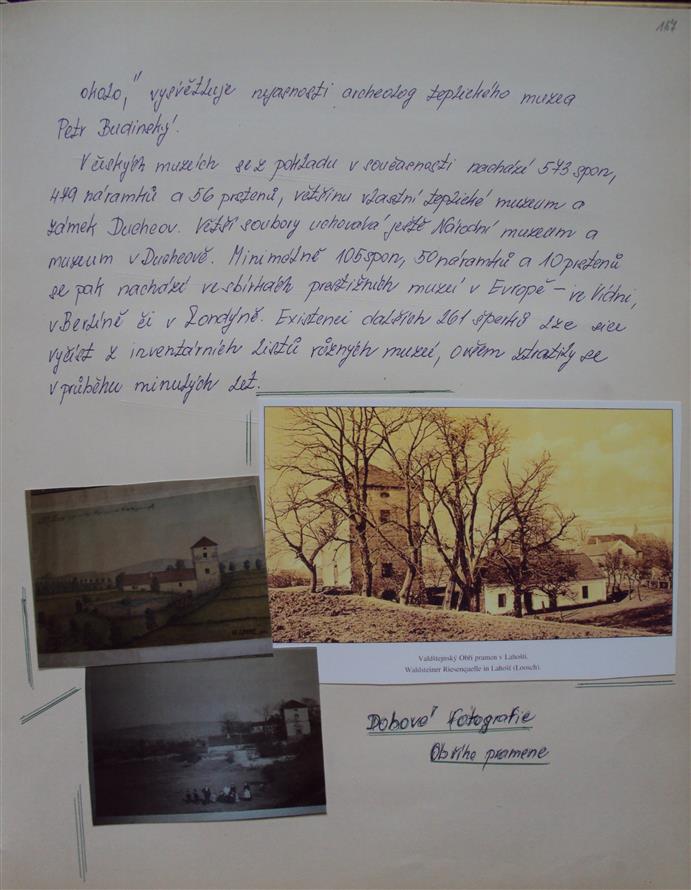 157
okolo," vysvětluje nejasnosti archeolog teplického muzea
Petr Budinský.
V českých muzeích se z pokladu v současnosti nachází 573 spon,
479 náramků a 56 prstenů, většinu vlastní teplické muzeum a
zámek Duchcov. Větší soubory uchovává ještě Národní muzeum a
muzeum v Duchcově. Minimálně 105 spon, 50 náramků a 10 prstenů
se pak nachází ve sbírkách prestižních muzeí v Evropě – ve Vídni,
v Berlíně či v Londýně. Existenci dalších 261 šperků lze sice
vyčíst z inventárních listů různých muzeí, ovšem ztratily se
v průběhu minulých let.
Valdštejnský Obří pramen v Lahošti.
Waldsteiner Riesenquelle in Lahošť (Loosch).
Dobové fotografie
Obřího pramene